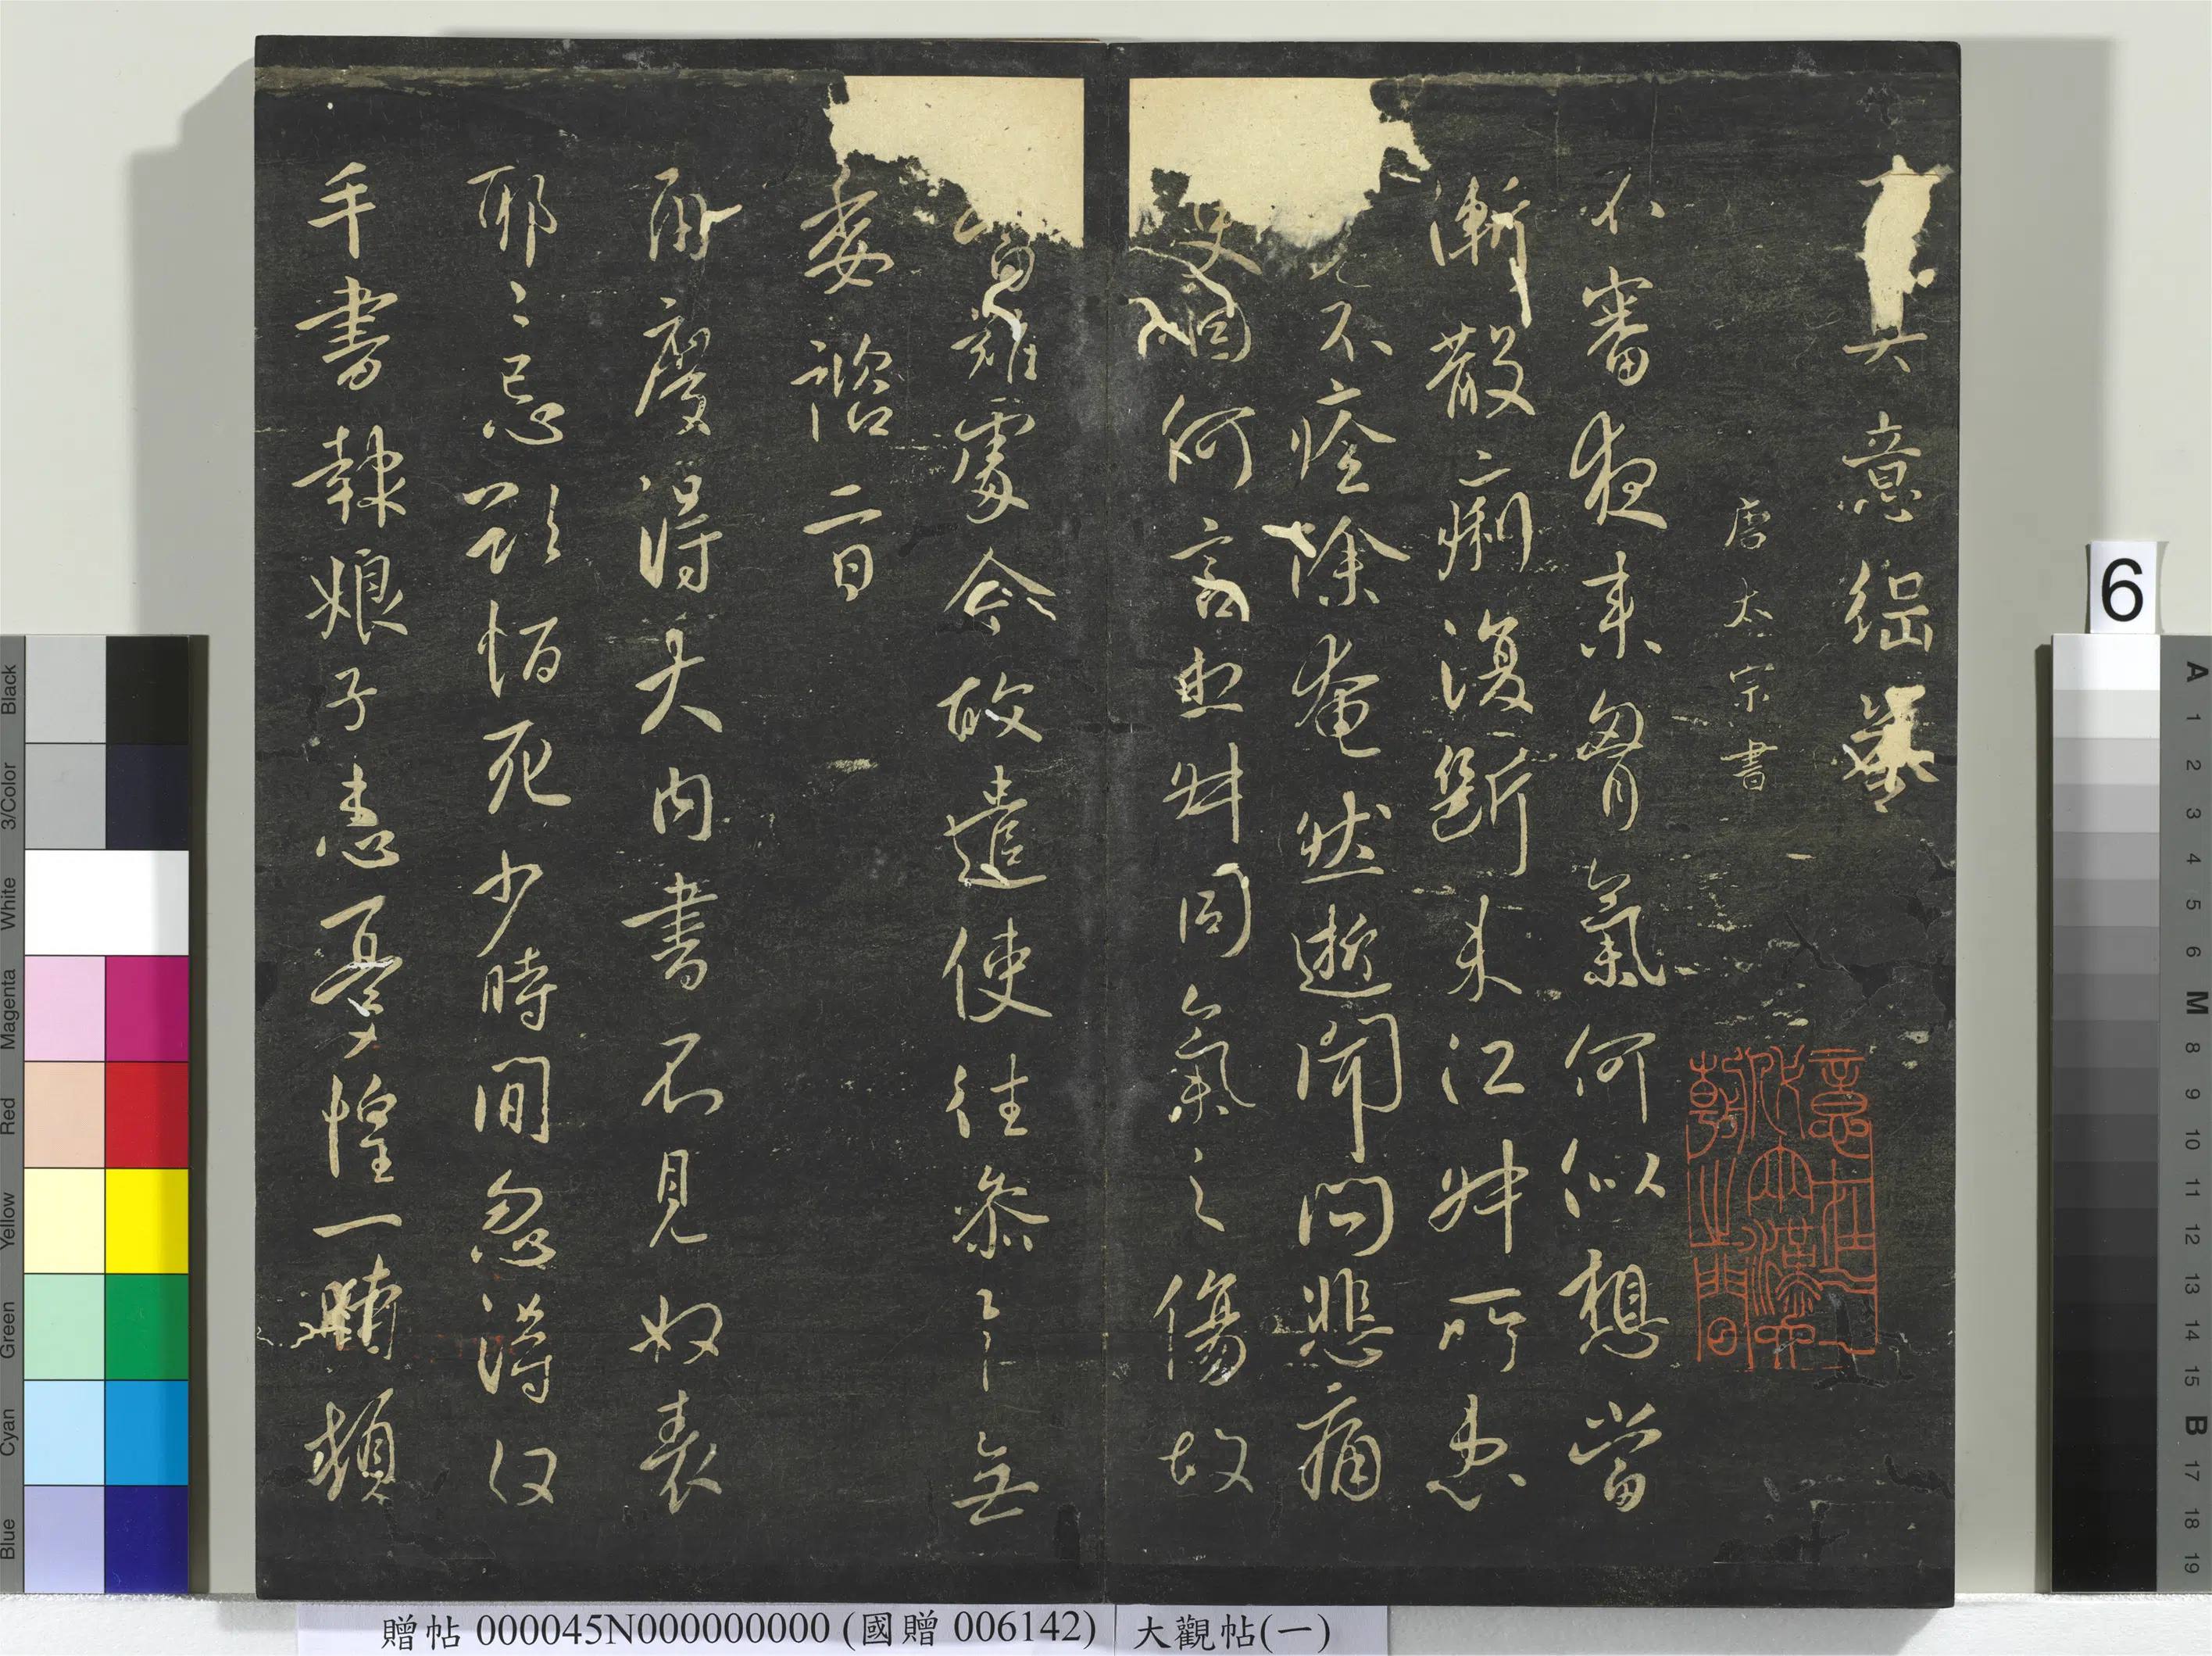 意
唐太宗書
不審夜來胸氣何似想當
漸散痢復斷未江叔所患
不痊除奄然逝聞問悲痛
因何言也叔同氣之傷故
難處今故遣使往參無
委諮二日
兩度得大內書不見奴表
耶〻忌欲恒死少時間忽得奴
手書報娘子患憂惶一時頓
Black
3/Color
White
Magenta
Red
Yellow
Green
Cyan
Blue
6
A 1 2 3 4 5 6 M 8 9 10 11 12 13 14 15 B 17 18 19
贈帖 000045N000000000 (國贈 006142)
大觀帖(一)